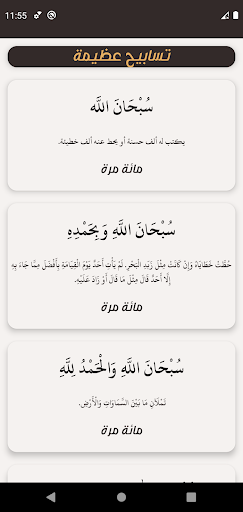 11:55
تسابيح عظيمة
سُبْحَانَ اللَّه
يكتب له ألف حسنة أو يحط عنه ألف خطيئة.
مائة مرة
سُبْحَانَ اللَّهِ وَبِحَمْدِهِ
حُطَّتْ خَطَايَاهُ وَإِنْ كَانَتْ مِثْلَ زَبَدِ الْبَحْرِ. لَمْ يَأْتِ أَحَدٌ يَوْمَ الْقِيَامَةِ بِأَفْضَلَ مِمَّا جَاءَ بِهِ
إِلَّا أَحَدٌ قَالَ مِثْلَ مَا قَالَ أَوْ زَادَ عَلَيْهِ.
مائة مرة
سُبْحَانَ اللَّهِ وَالْحَمْدُ لِلَّهِ
تَمْلَآنِ مَا بَيْنَ السَّمَاوَاتِ وَالْأَرْضِ.
مائة مرة